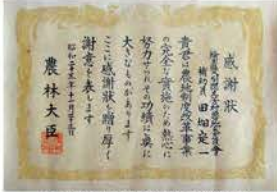 感謝狀
補助員 田畑定一
貴君は農地制度改革事業
の完全な實施のため熱心に
努力せられその功績は眞に
大きなものがあります
ここに感謝狀を贈り厚く
謝意を表します
昭和二十五年十一月二十五日
農林大臣